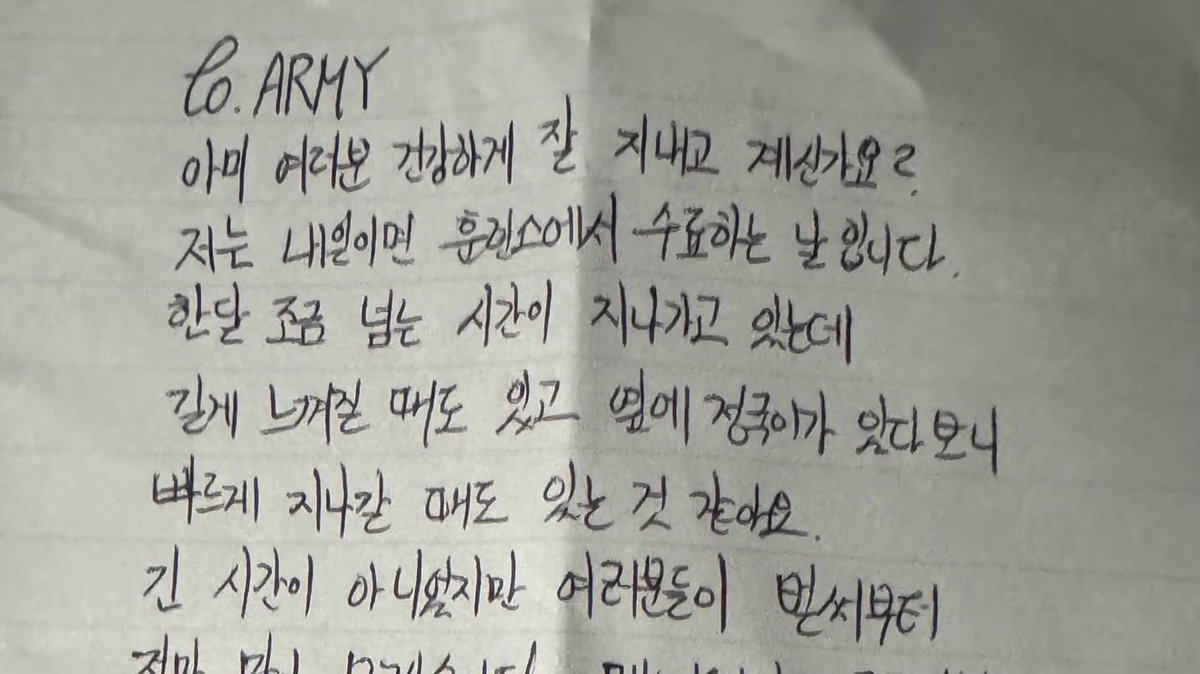 To. ARMY
아미 여러분 건강하게 잘 지내고 계신가요?
저는 내일이면 훈련소에서 수료하는 날입니다.
한달 조금 넘는 시간이 지나가고 있는데
길게 느껴질 때도 있고 옆에 정국이가 있다보니
빠르게 지나갈 때도 있는 것 같아요.
긴 시간이 아니였지만 여러분들이 벌써부터